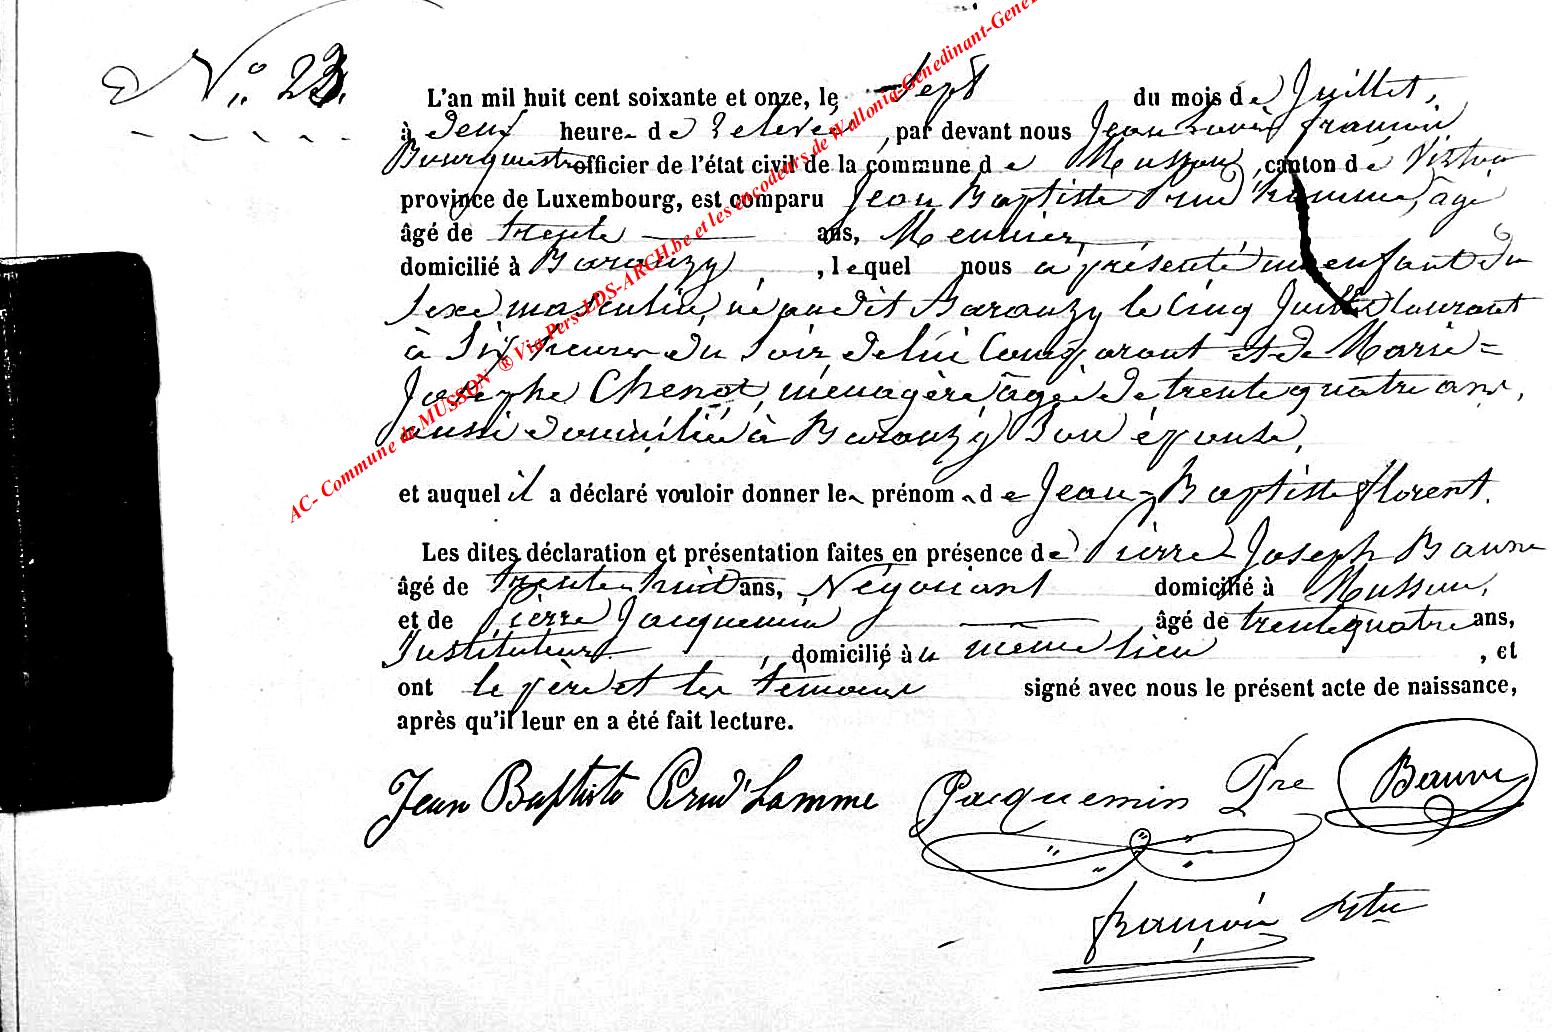 N.° 23.
L'an mil huit cent soixante et onze, le Sept du mois de Juillet,
à deux heures de relevée, par devant nous Jean Louis françois
Bourgmestre officier de l'état civil de la commune de Musson, canton de Virton
province de Luxembourg, est comparu Jean Baptiste Prud'homme, âgé
âgé de trente ans, Meunier,
domicilié à Baranzy, lequel nous a présenté un enfant du
sexe masculin, né audit Baranzy le cinq Juillet courant
à Six heures du soir, de lui Comparant et de Marie=
Josephe Chenot, ménagère âgée de trente quatre ans,
aussi domiciliée à Baranzy Son épouse,
et auquel il a déclaré vouloir donner les prénoms de Jean-Baptiste florent.
Les dites déclaration et présentation faites en présence de Pierre Joseph Bauvre
âgé de trente huit ans, Négociant domicilié à Musson,
et de Pierre Jacquemin âgé de trente quatre ans,
Instituteur, domicilié au même lieu, et
ont le père et les témoins signé avec nous le présent acte de naissance,
après qu'il leur en a été fait lecture.
Jean Baptiste Prud'homme Jacquemin Pre Bauvre
françois
AC- Commune de MUSSON ® Via Pers-LDS-ARCH.be et les encodeurs de Wallonia-Genedinant-Gene